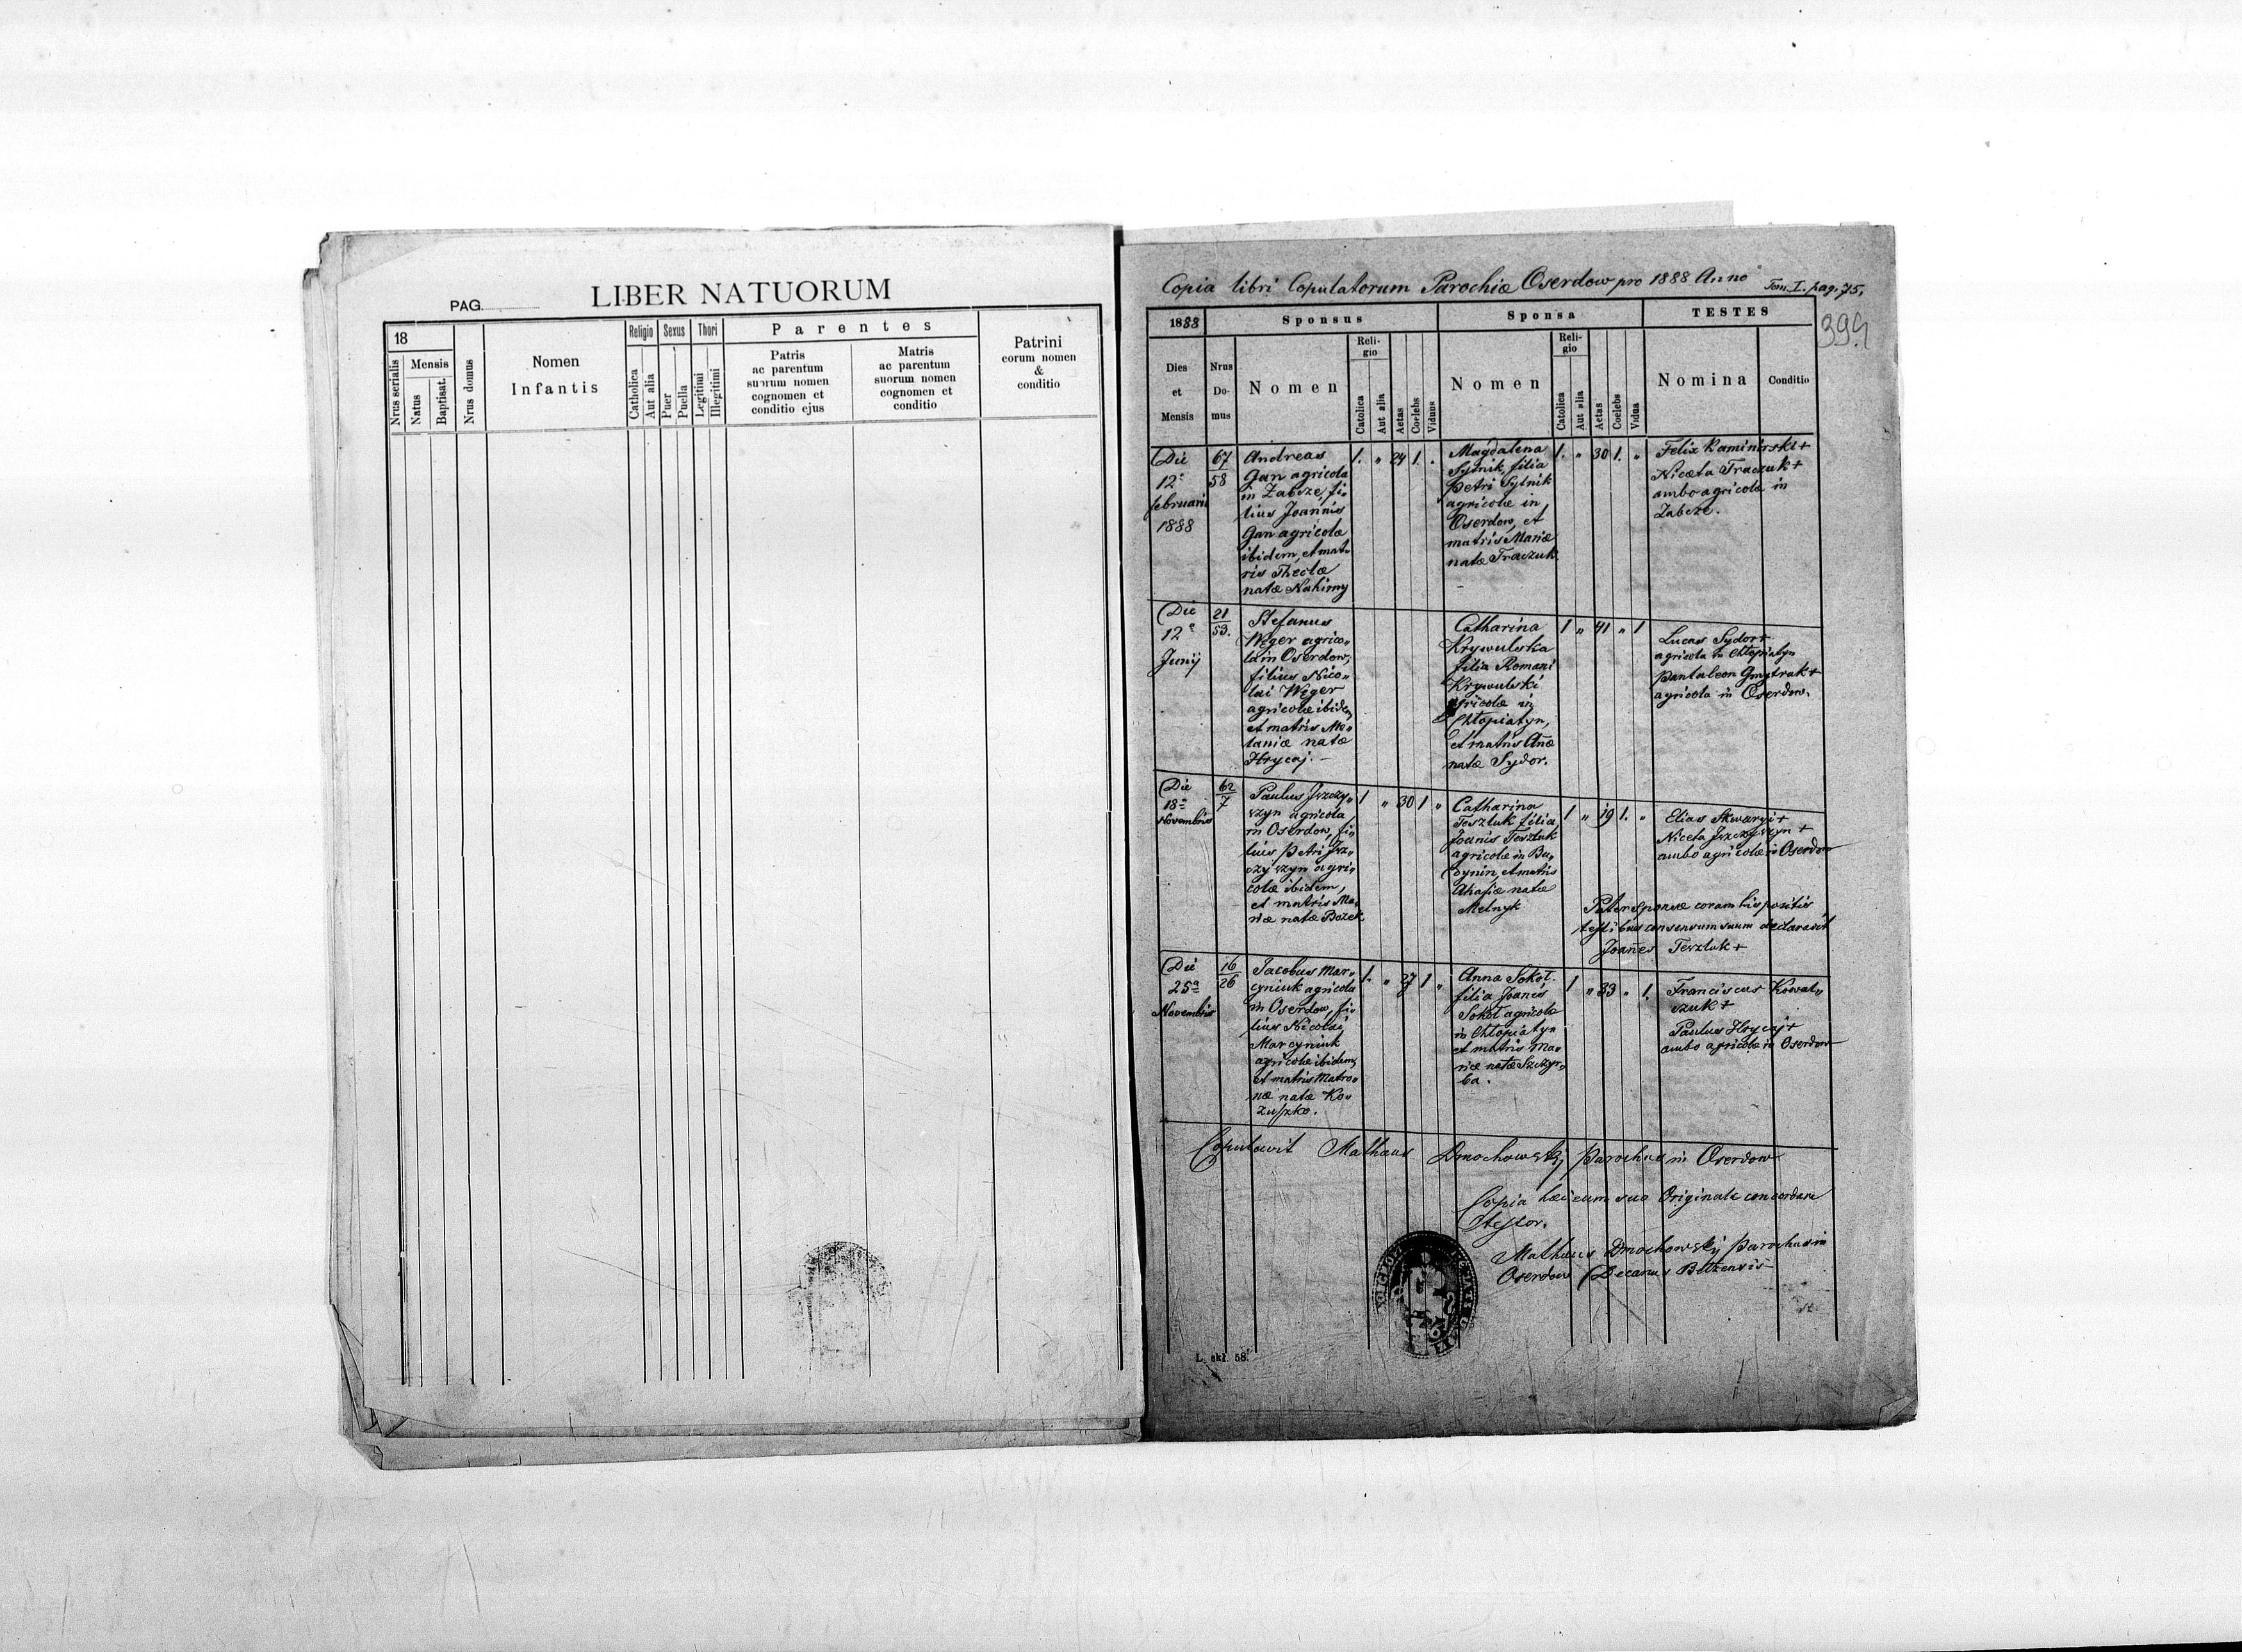 PAG.
LIBER NATUORUM
18
Religio
Sexus
Thori
Parentes
Nrus serialis
Mensis
Natus
Baptisat.
Nrus domus
Nomen
Infantis
Catholica
Aut alia
Puer
Puella
Legitimi
Illegitimi
Patris
ac parentum
suorum nomen
cognomen et
conditio ejus
Matris
ac parentum
suorum nomen
cognomen et
conditio
Patrini
eorum nomen
&
conditio
Copia libri Copulatorum Parochiæ Oserdow pro 1888 Anno Tom I. pag. 75.
1888
Sponsus
Sponsa
TESTES
Dies
et
Mensis
Nrus
Do-
mus
Nomen
Reli-
gio
Catolica
Aut alia
Aetas
Coelebs
Viduus
Nomen
Reli-
gio
Catolica
Aut alia
Aetas
Coelebs
Vidua
Nomina
Conditio
Die
12a
februarii
1888
67
58
Andreas
Gan agricola
in Zabcze, fi„
lius Joannis
Gan agricolæ
ibidem, et mat„
ris Theclæ
natæ Nahirny
1. „ 24 1. „
Magdalena
Sytnik, filia
Petri Sytnik
agricolæ in
Oserdow, et
matris Mariæ
natæ Traczuk
1. „ 30 1. „
Felix Kaminski +
Niceta Traczuk +
ambo agricolæ in
Zabcze.
Die
12a
Junij
21
53.
Stefanus
Weger agrico„
la in Oserdow,
filius Nico„
lai Weger
agricolæ ibidem,
et matris Me„
laniæ natæ
Hrycaj. –
Catharina
Krywulska
filia Romani
Krywulski
agricolæ in
Chłopiatyn,
et matris Anæ
natæ Sydor.
1 „ 41 „ 1
Lucas Sydor +
agricola in Chłopiatyn
Pantaleon Gmytrak +
agricola in Oserdow.
Die
18a
Novembris
62
7
Paulus Jszczy„
szyn agricola
in Oserdow, fi„
lius Petri Jsz„
czyszyn agri„
colæ ibidem,
et matris Ma„
riæ natæ
1 „ 30 1 „
Catharina
Teszluk filia
Joanis Teszluk
agricolæ in Bu„
dynin, et matris
Ahafiæ natæ
Melnyk
1 „ 19 1. „
Elias Skwaryi +
Niceta Jszczyszyn +
ambo agricolæ in Oserdow
Pater Sponsæ coram his positis
testibus consensum suum declaravit
Joannes Teszluk +
Die
25a
Novembris
16
26
Jacobus Mar„
cyniuk agricola
in Oserdow, fi„
lius Nicolai
Marcyniuk
agricolæ ibidem,
et matris Matro„
næ natæ Ko„
zuszko.
1. „ 27 1 „
Anna Sokoł
filia Joanis
Sokoł agricolæ
in Chłopiatyn
et matris Ma„
riæ natæ Szczyr„
ba.
1 „ 33 „ 1.
Franciscus Kowal„
szuk +
Paulus Hrycaj +
ambo agricolæ in Oserdow
Copulavit Mathæus Dmochowskij Parochus in Oserdow
Copia hæc cum suo Originale concordare
testor.
Mathæus Dmochowskij Parochus in
Oserdow Decanus Belzensis
L. skł. 58.